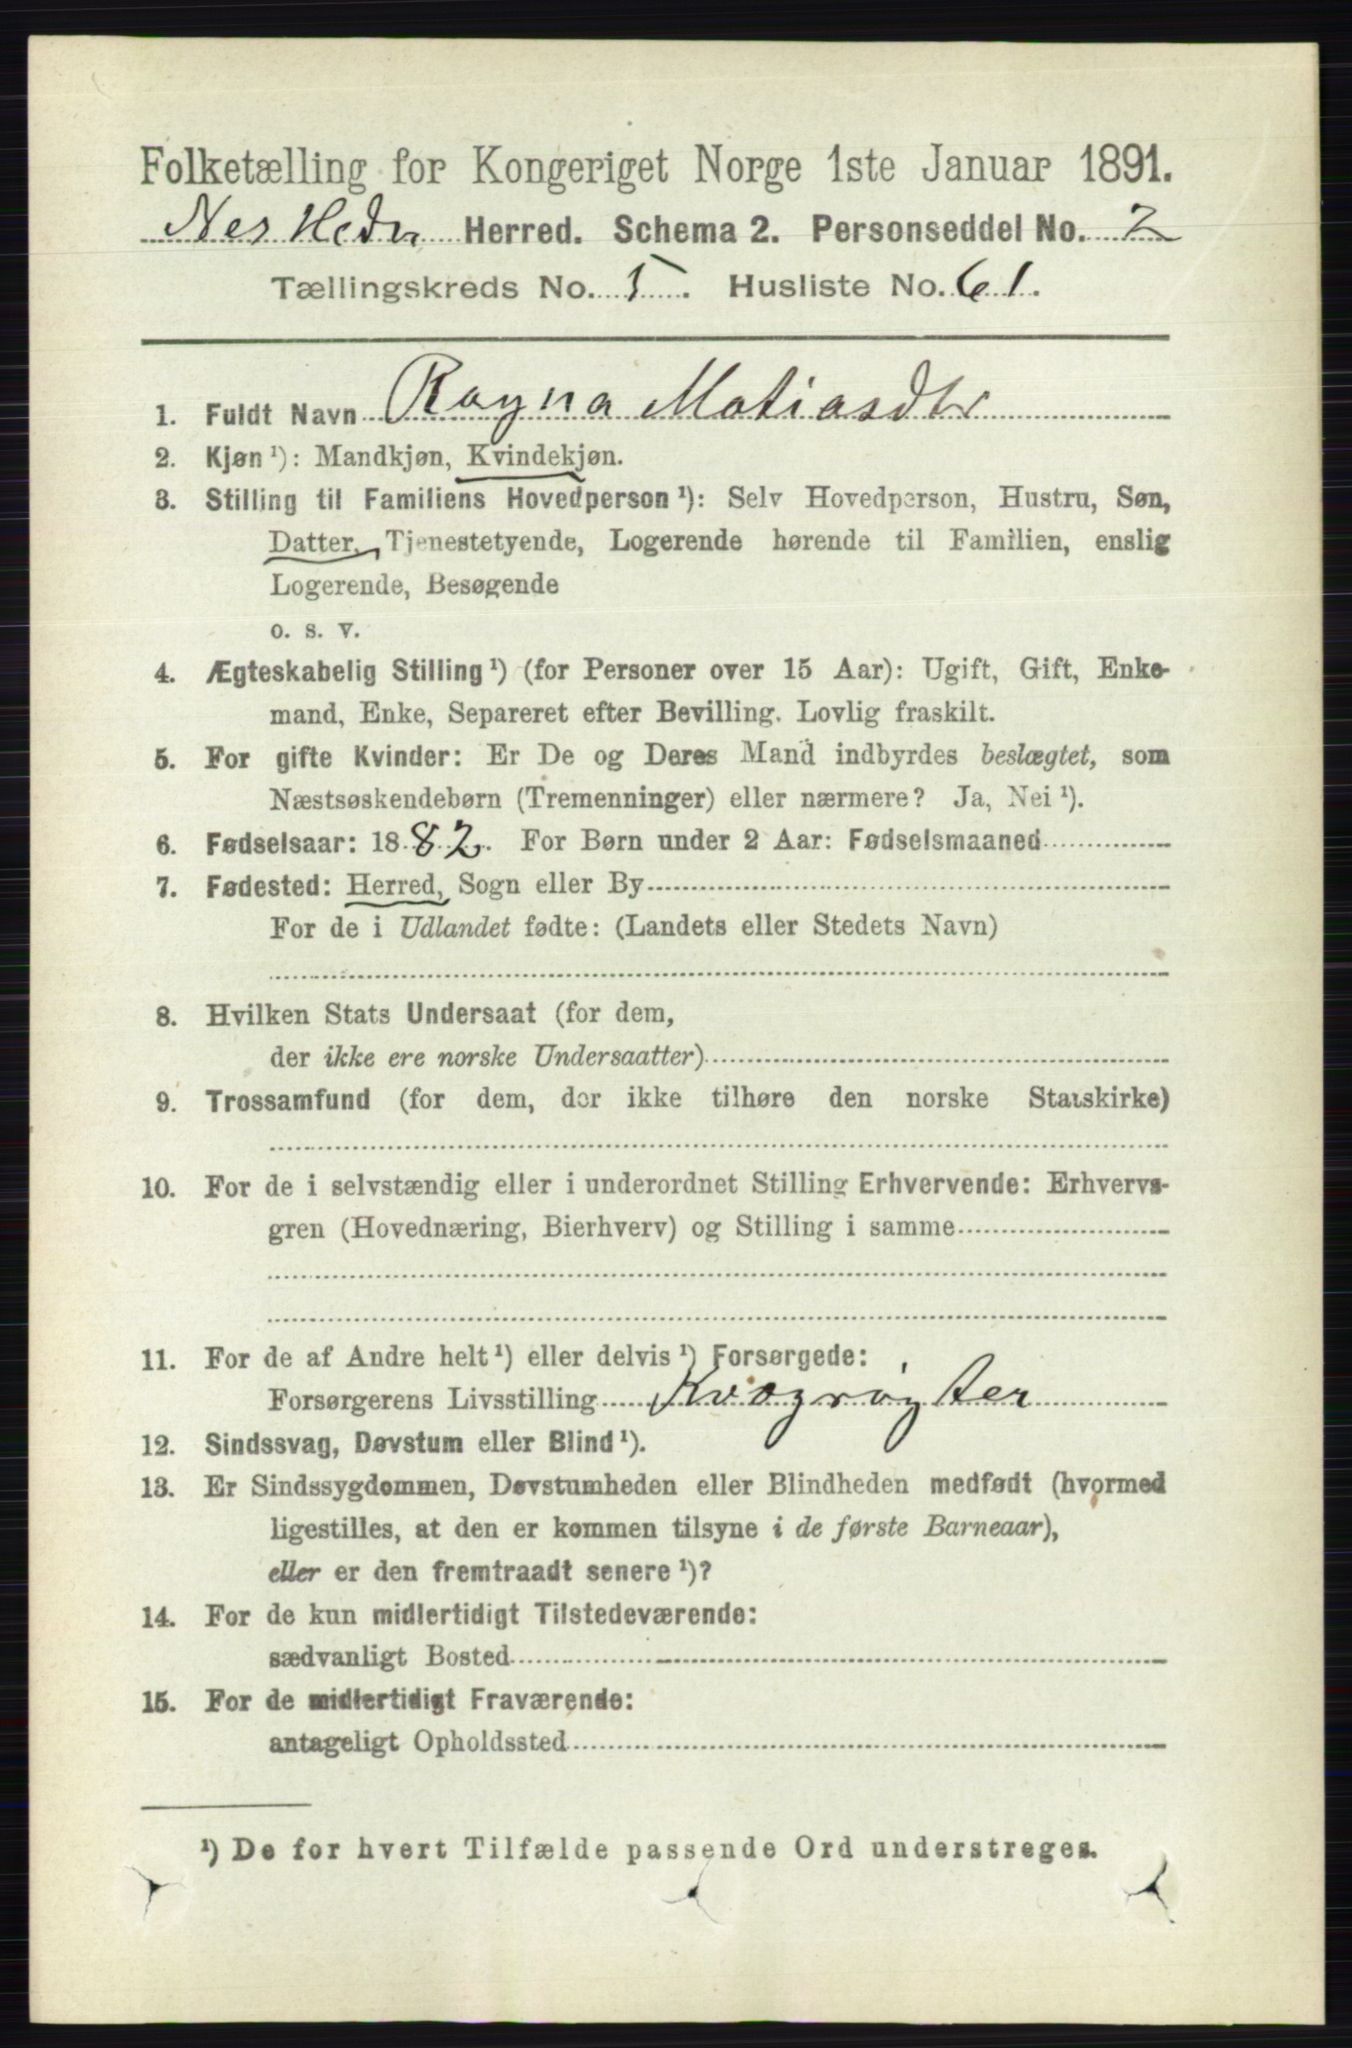 Folketælling for Kongeriget Norge 1ste Januar 1891.
Nes Hedm Herred. Schema 2. Personseddel No. 2
Tællingskreds No. 5. Husliste No. 61.
1. Fuldt Navn Ragna Matiasdtr
2. Kjøn ¹): Mandkjøn, Kvindekjøn.
3. Stilling til Familiens Hovedperson ¹): Selv Hovedperson, Hustru, Søn,
Datter, Tjenestetyende, Logerende hørende til Familien, enslig
Logerende, Besøgende
o. s. v.
4. Ægteskabelig Stilling ¹) (for Personer over 15 Aar): Ugift, Gift, Enke-
mand, Enke, Separeret efter Bevilling. Lovlig fraskilt.
5. For gifte Kvinder: Er De og Deres Mand indbyrdes beslægtet, som
Næstsøskendebørn (Tremenninger) eller nærmere? Ja, Nei ¹).
6. Fødselsaar: 1882. For Børn under 2 Aar: Fødselsmaaned
7. Fødested: Herred, Sogn eller By
For de i Udlandet fødte: (Landets eller Stedets Navn)
8. Hvilken Stats Undersaat (for dem,
der ikke ere norske Undersaatter)
9. Trossamfund (for dem, der ikke tilhøre den norske Statskirke)
10. For de i selvstændig eller i underordnet Stilling Erhvervende: Erhvervs-
gren (Hovednæring, Bierhverv) og Stilling i samme
11. For de af Andre helt ¹) eller delvis ¹) Forsørgede:
Forsørgerens Livsstilling Kvægrøgter
12. Sindssvag, Døvstum eller Blind ¹).
13. Er Sindssygdommen, Døvstumheden eller Blindheden medfødt (hvormed
ligestilles, at den er kommen tilsyne i de første Barneaar),
eller er den fremtraadt senere ¹)?
14. For de kun midlertidigt Tilstedeværende:
sædvanligt Bosted
15. For de midlertidigt Fraværende:
antageligt Opholdssted
¹) De for hvert Tilfælde passende Ord understreges.